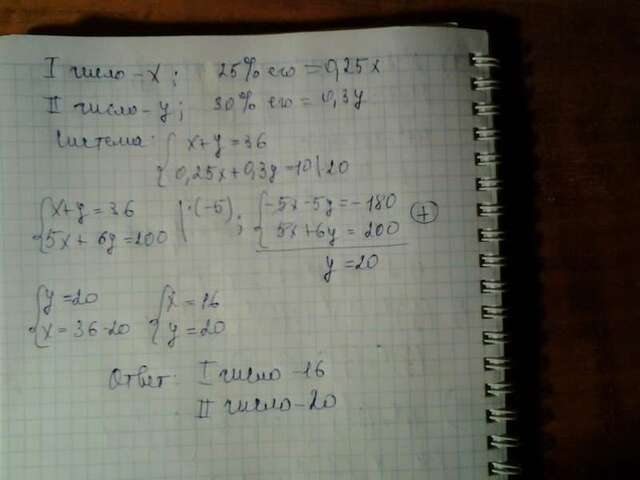 I число - x; 25% его = 0,25x
II число - y; 30% его = 0,3y
Система: { x+y = 36
{ 0,25x + 0,3y = 10 | 20
{ x+y = 36 | ·(-5); { -5x-5y = -180 (+)
{ 5x + 6y = 200 { 5x+6y = 200
y = 20
{ y = 20 { x = 16
{ x = 36-20 { y = 20
Ответ: I число - 16
II число - 20